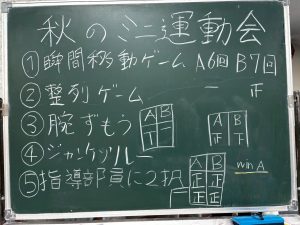 秋のミニ運動会
①瞬間移動ゲーム A6回 B7回
②整列ゲーム 一 正
③腕ずもう A B 一 正 正 下
④ジャンケンリレー
⑤指導部員に2択 A B 正 正 正 正 win A